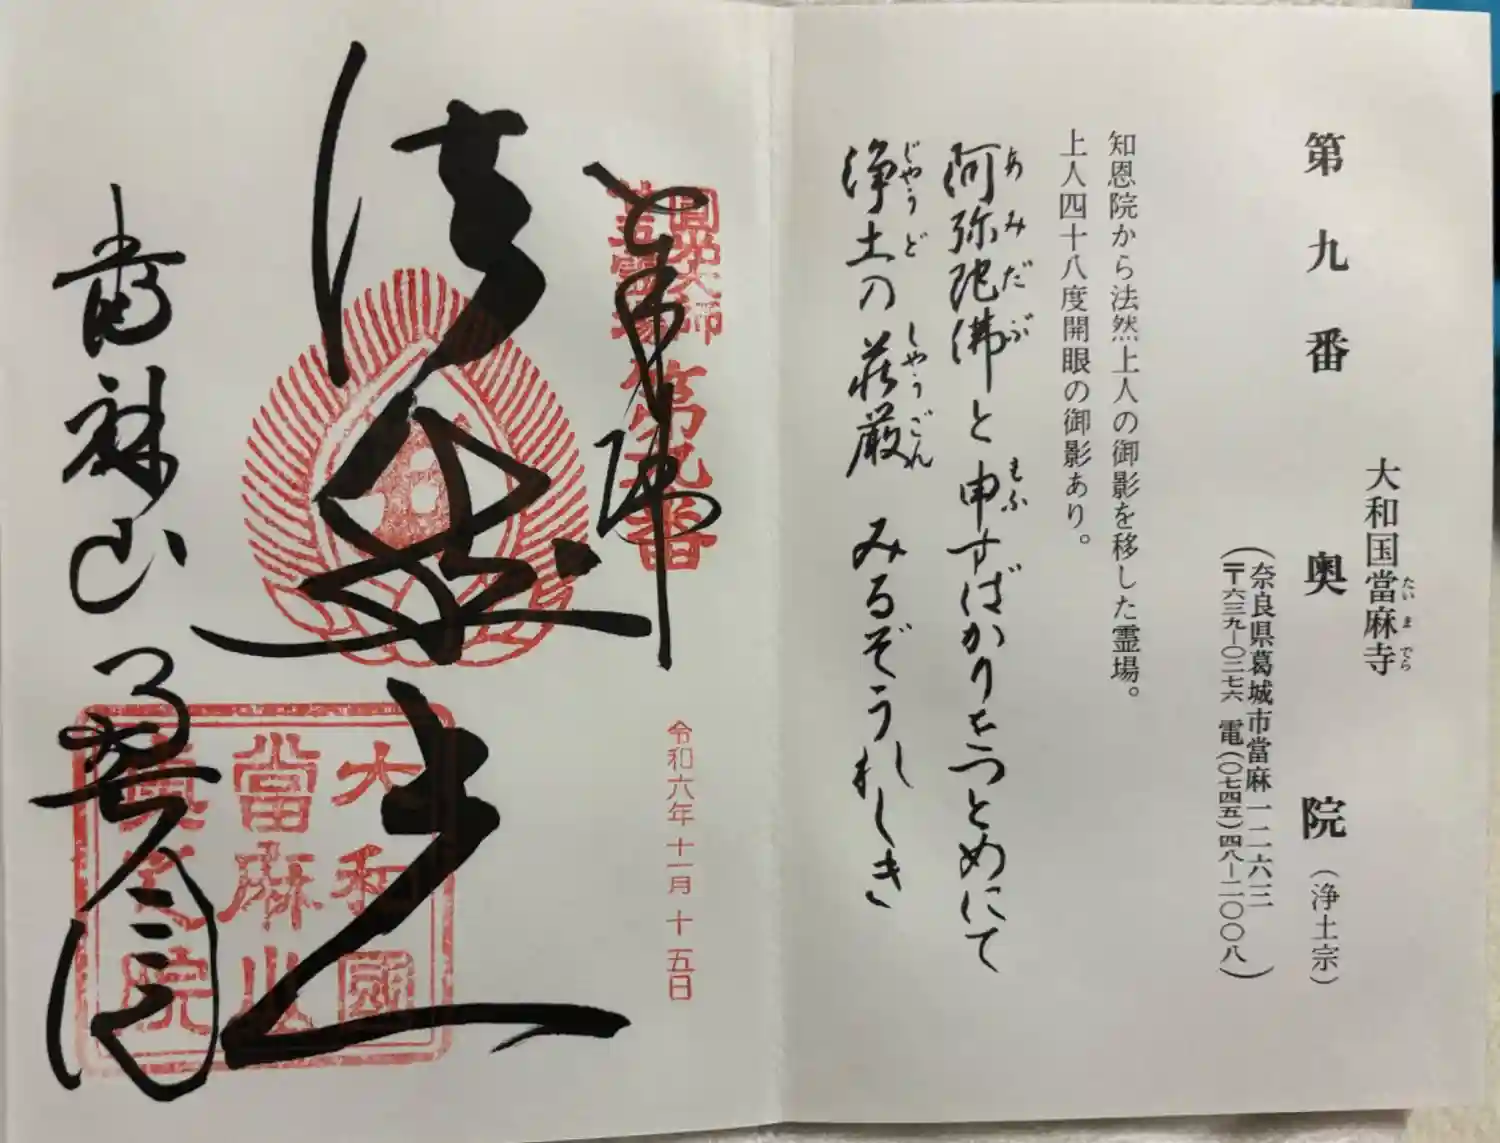 大和国當麻寺
たいまでら
第九番 奥院（浄土宗）
（奈良県葛城市當麻一二六三
〒六三九－〇二七六 電（〇七四五）四八－二〇〇八）
知恩院から法然上人の御影を移した霊場。
上人四十八度開眼の御影あり。
あみだぶ もふ
阿弥陀佛と申すばかりをつとめにて
じやうど しやうごん
浄土の荘厳 みるぞうれしき
圓光大師
二十五霊場
第九番
奉拝
令和六年十一月十五日
法然上人
大和國
當麻山
奥之院
當麻山 奥之院